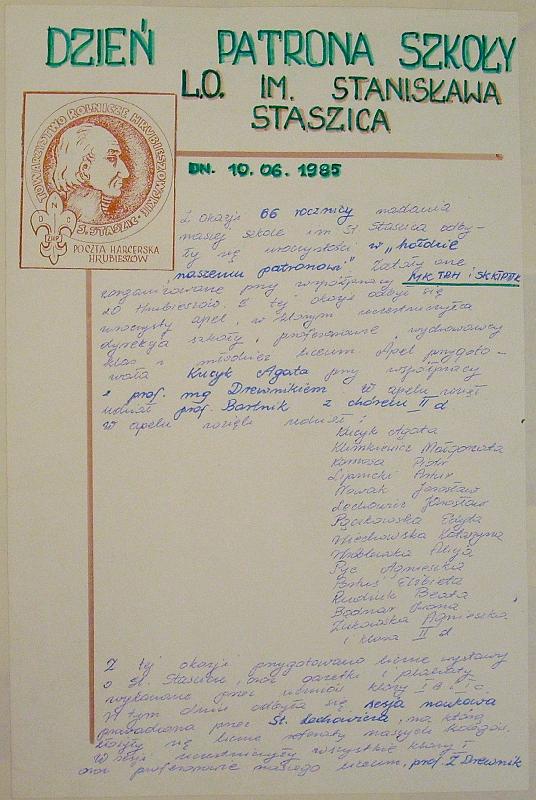 DZIEŃ PATRONA SZKOŁY
L.O. IM. STANISŁAWA
STASZICA
TOWARZYSTWO ROLNICZE HRUBIESZOWSKIE
J. STASZIC
ZHP
POCZTA HARCERSKA
HRUBIESZÓW
DN. 10.06.1985
Z okazji 66 rocznicy nadania
naszej szkole im St. Staszica odby-
ły się uroczystości w „hołdzie
naszemu patronowi" Zostały one
zorganizowane przy współpracy KIK TBH i SKKTPTTK
LO Hrubieszów. Z tej okazji odbył się
uroczysty apel, w którym uczestniczyła
dyrekcja szkoły, profesorowie, wychowawcy
klas i młodzież liceum. Apel przygoto-
wała Kucyk Agata przy współpracy
z prof. mg Drewnikiem W apelu wziął
udział prof. Bartnik z chórem II d
W apelu wzięli udział:
Kucyk Agata
Klimkiewicz Małgorzata
Komosa Piotr
Lipnicki Artur
Nowak Jarosław
Lachowicz Jarosław
Pączkowska Edyta
Wiechowska Katarzyna
Wróblewska Alicja
Pyc Agnieszka
Elżbieta
Rudnik Beata
Bednar Iwona
Żukowska Agnieszka
i klasa II d
Z tej okazji przygotowano liczne wystawy
o St. Staszicu, oraz gazetki i plakaty
wykonane przez uczniów klasy I B i I c.
W tym dniu odbyła się sesja naukowa
prowadzona przez St. Lachowicza, na którą
złożyły się liczne referaty naszych kolegów.
W sesji uczestniczyły wszystkie klasy I
oraz profesorowie naszego liceum, prof. Z Drewnik